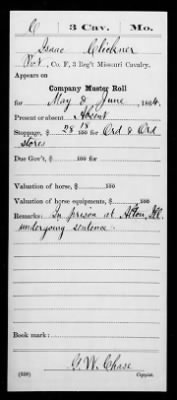 C 3 Cav. Mo.
Isaac Clickner
Pvt, Co. F, 3 Reg't Missouri Cavalry.
Appears on
Company Muster Roll
for May & June, 1864.
Present or absent Absent
Stoppage, $28 18/100 for Ord & Ord
stores
Due Gov't, $ 100 for
Valuation of horse, $ 100
Valuation of horse equipments, $ 100
Remarks: In prison at Alton, Ill
undergoing sentence.
Book mark:
G. W. Chase
(858) Copyist.